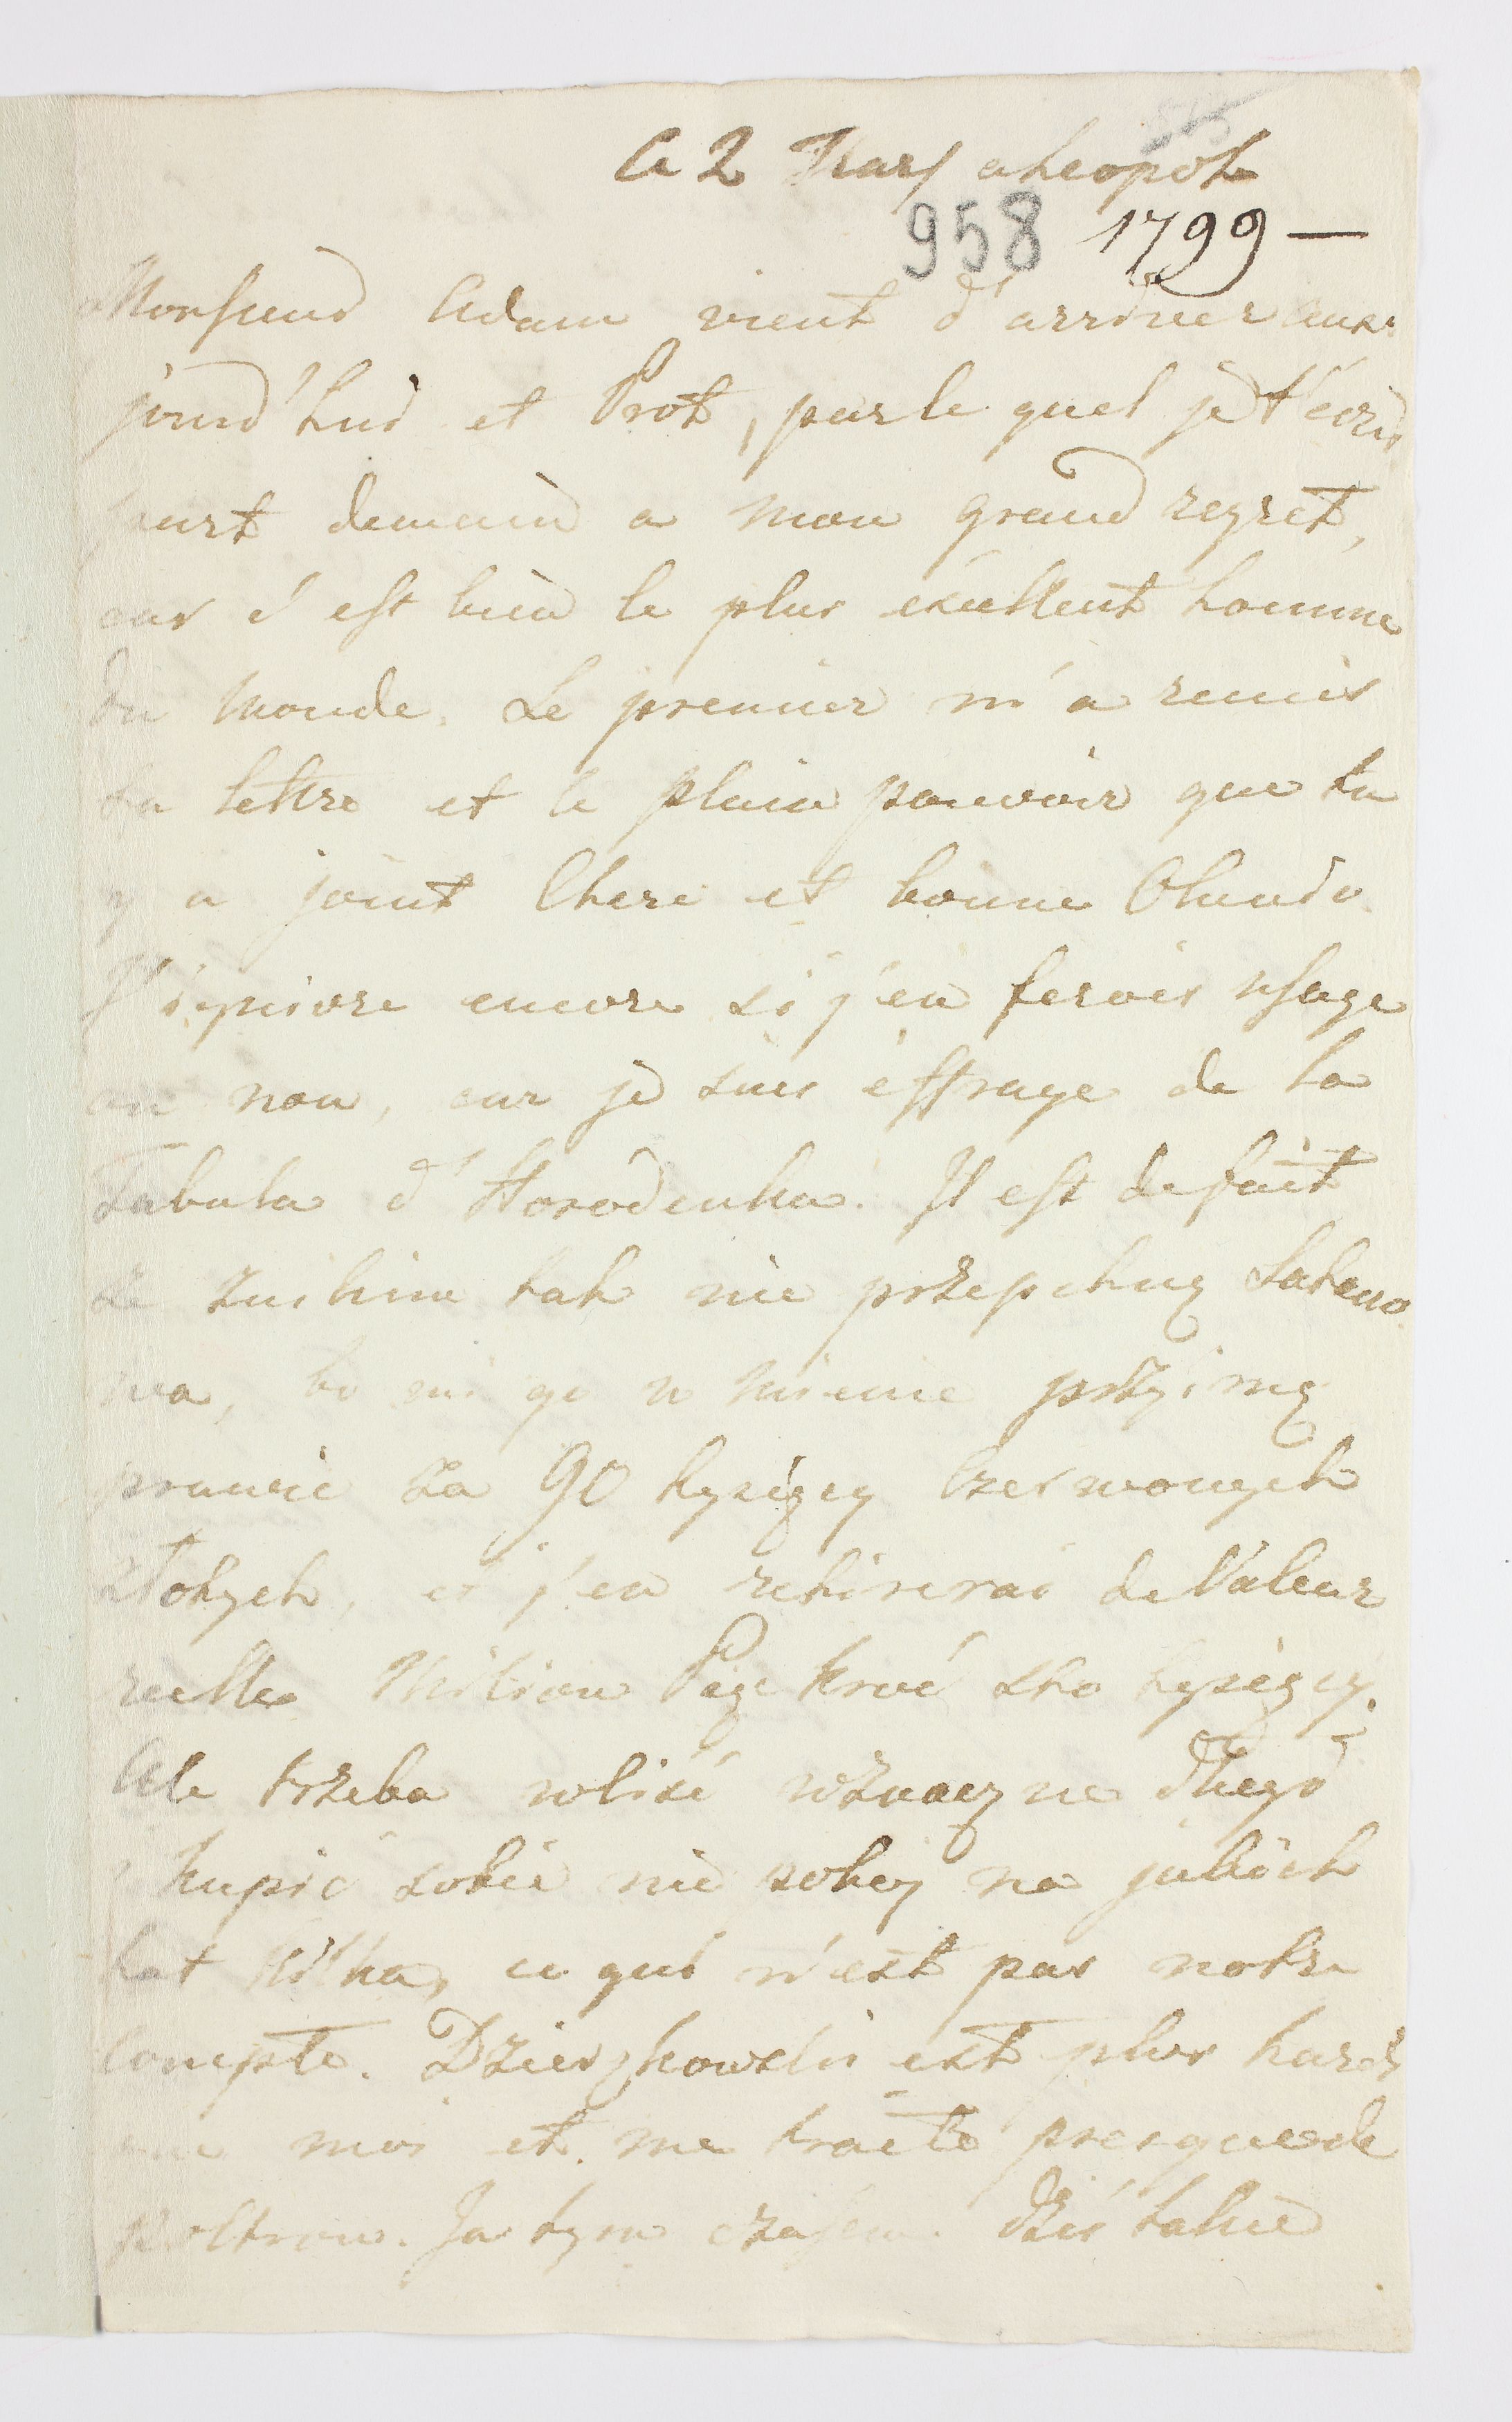 Ce 2 Mars a Leopol
958 1799 —
Monsieur Adam vient d'arriver aux
jourd'hui et Prot, par le quel je t'écris
part demain a mon grand regret,
car c'est bien le plus exellent homme
du monde. Le premier m'a remis
ta lettre et le plain pouvoir que tu
y a joint Chere et bonne
J'ignore encore si j'en ferois usage
ou non, car je suis effraye de la
Tabula d'Horodenka. Il est de fait
że nikim tak nie przepchnę Satano
wa, bo mi go w summie przyimą
prawie za 90 tysięcy Czerwonych
złotych, et j'en retirerai de Valeur
reelle Milion Pięckroć sto tysięcy.
Ale trzeba wliść w znaczne długi
i kupić sobie niepokoy na jakich
lat kilka, ce qui n'est pas notre
compte. Dzierzkowski est plus hardi
que moi et me traite presque de
poltron. Ja tym czasem Dziś takie